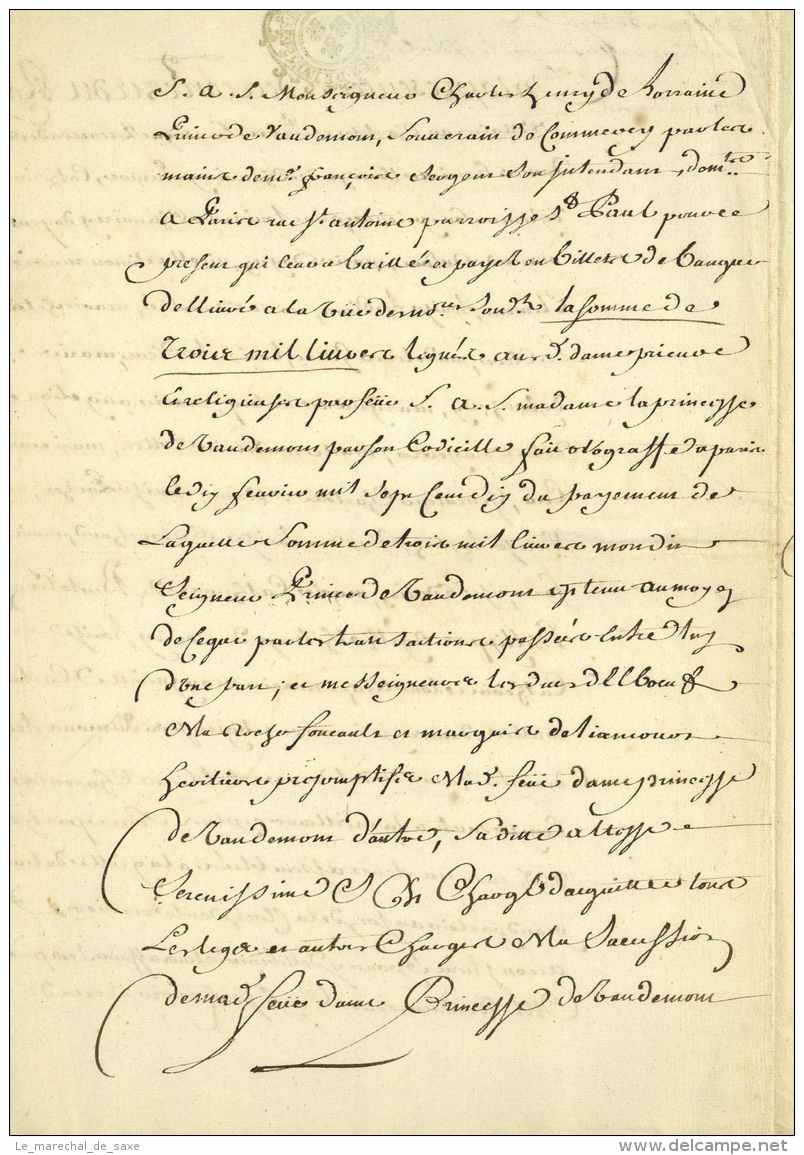 S. A. S. Monseigneur Charles henry de Lorraine
Prince de Vaudemont, Souverain de Commercy par les
mains de mr. françois Son Intendant, demt.
A Paris rue St. antoine parroisse St. Paul pour ce
present qui leur a baillé et payé en billets de banque
delivré a la vüe des no.res Sous.nez la somme de
Trois mil livres legués aus d. dame prieure
& religieuses par feüe S. A. S. madame la princesse
de Vaudemont par son Codicille fait olograffe a paris
le dix feavier mil Sept Cent dix du payement de
Laquelle Somme de trois mil livres mondit
Seigneur Prince de Vaudemont est tenu au moyen
de ce que par les transactions passées Entre luy
d'une part; et messeigneurs les ducs d'Elboeuf
de la Roche foucault et marquis de liancourt
heritiers presomptifs de lad. feüe dame princesse
de Vaudemont d'autre, Sa ditte altesse
Serenissime Est Chargé d'acquitter tous
Les legs et autres Charges de la Succession
de mad. feüe dame Princesse de Vaudemont
Le_marechal_de_saxe
delcampe.net